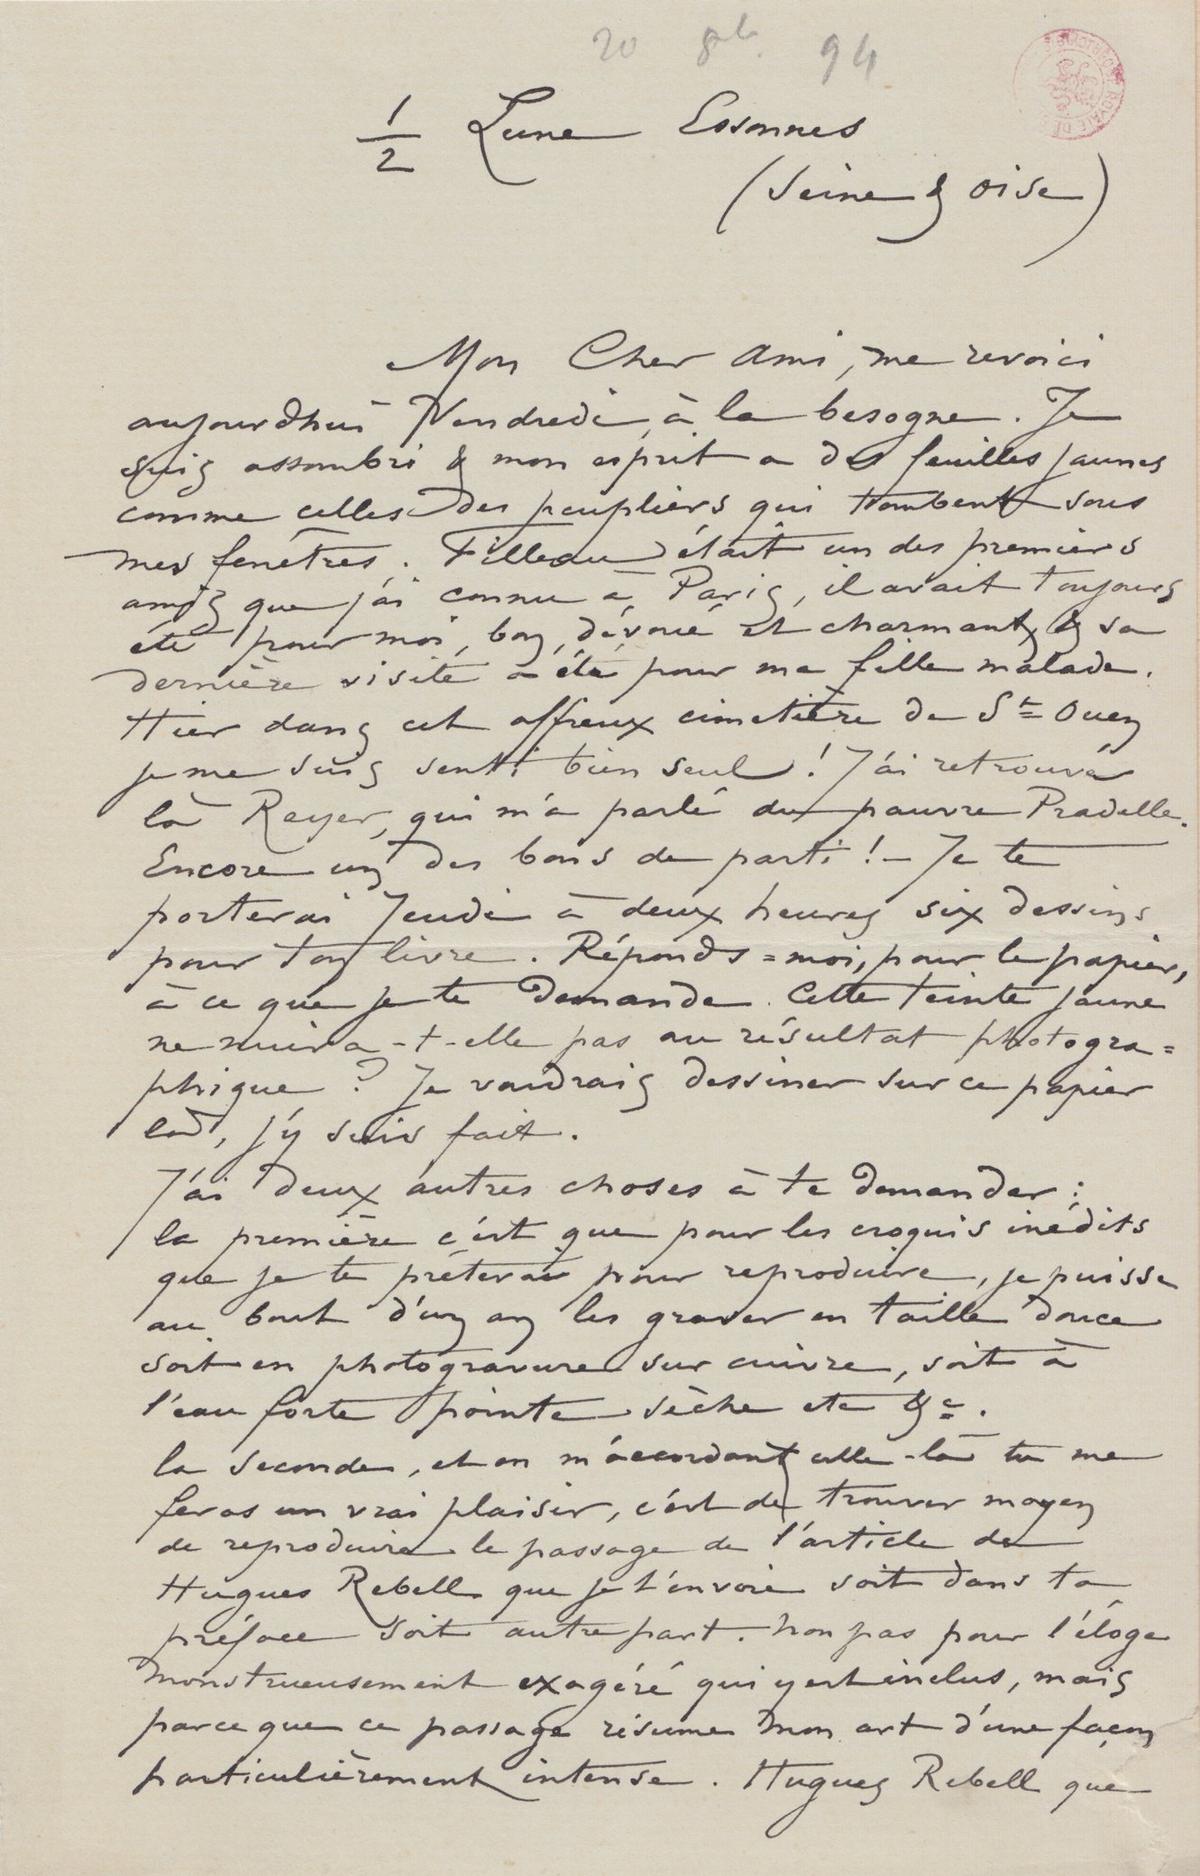 20 8bre 94
1/2 Lune Essonnes
(Seine & Oise)
Mon Cher Ami, me revoici
aujourdhui Vendredi, à la besogne. Je
suis assombri & mon esprit a des feuilles jaunes
comme celles des peupliers qui tombent sous
mes fenêtres. Filleau était un des premiers
amis que j'ai connu à Paris, il avait toujours
été pour moi, bon, dévoué et charmant, & sa
dernière visite a été pour ma fille malade.
Hier dans cet affreux cimetière de St= Ouen
je me suis senti bien seul ! J'ai retrouvé
là Reyer, qui m'a parlé du pauvre Pradelle.
Encore un des bons de parti ! - Je te
porterai Jeudi à deux heures six dessins
pour ton livre. Réponds=moi, pour le papier,
à ce que je te demande. Cette teinte jaune
ne nuira-t-elle pas au résultat photogra=
phique ? Je voudrais dessiner sur ce papier
là, j'y suis fait.
J'ai deux autres choses à te demander :
la première c'est que pour les croquis inédits
que je te prêterai pour reproduire, je puisse
au bout d'un an les graver en taille douce
soit en photogravure sur cuivre, soit à
l'eau forte pointe sèche etc &c.
la seconde, et en m'accordant celle-là tu me
feras un vrai plaisir, c'est de trouver moyen
de reproduire le passage de l'article de
Hugues Rebell que je t'envoie soit dans ta
préface soit autre part. non pas pour l'éloge
monstrueusement exagéré qui y est inclus, mais
parce que ce passage résume mon art d'une façon
particulièrement intense. Hugues Rebell que